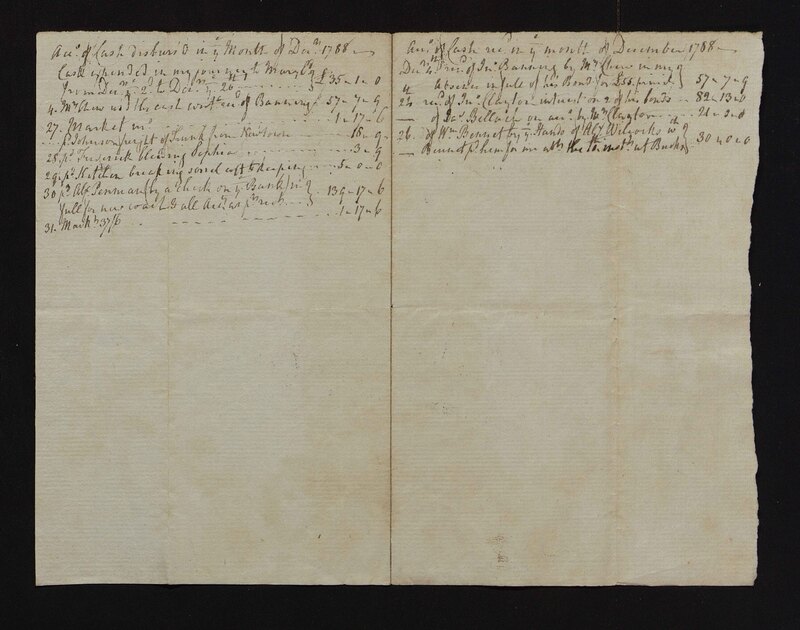 Acct. of Cash disburs'd in ye Month of Decr. 1788
Cash expended in my journey to Maryld.
from Decr. ye 2d. to Decr. ye 26 £35-1-0
4. Mrs Chew recd the cash recd. of Banning 57-7-9
27. Market mo. 1-17-6
pd Johnson freight of Trunk from Newtown 18-9
28 pd. Frederick bleeding Sophia 3-9
29 pd. Kitchen breaking sorrel colt & keeping 5-0-0
30 pd. Alex Penman by a check on ye Bank in
full for new coach & all Accts as pr rect. 139-17-6
31. Mark. 37/6 1-17-6
Acct. of Cash recd. in ye month of December 1788
Decr. 4th recd. of Jno. Banning by Mrs Chew in my
absence in full of his Bond for £55 princl. 57-7-9
24 recd. of Jno. Clayton interest on 2 of his bonds 82-13-6
— of Jas. Bellach on acct. by Mr Clayton 21-5-0
26. of Wm Bonnet by ye Hands of Alexr Wilcocks wch.
— Bennet pd. him for me at the Court at Bucks 30-0-0